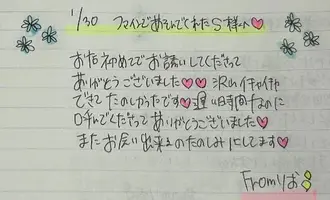 1/30 ファインであそんでくれたS様へ♡
お店初めてでお誘いしてくださって
ありがとうございました♡♡沢山イチャイチャ
できてたのしかったです♡遅い時間なのに
呼んでくださってありがとうございました♡
またお会い出来るのたのしみにしてます♡
Fromりお